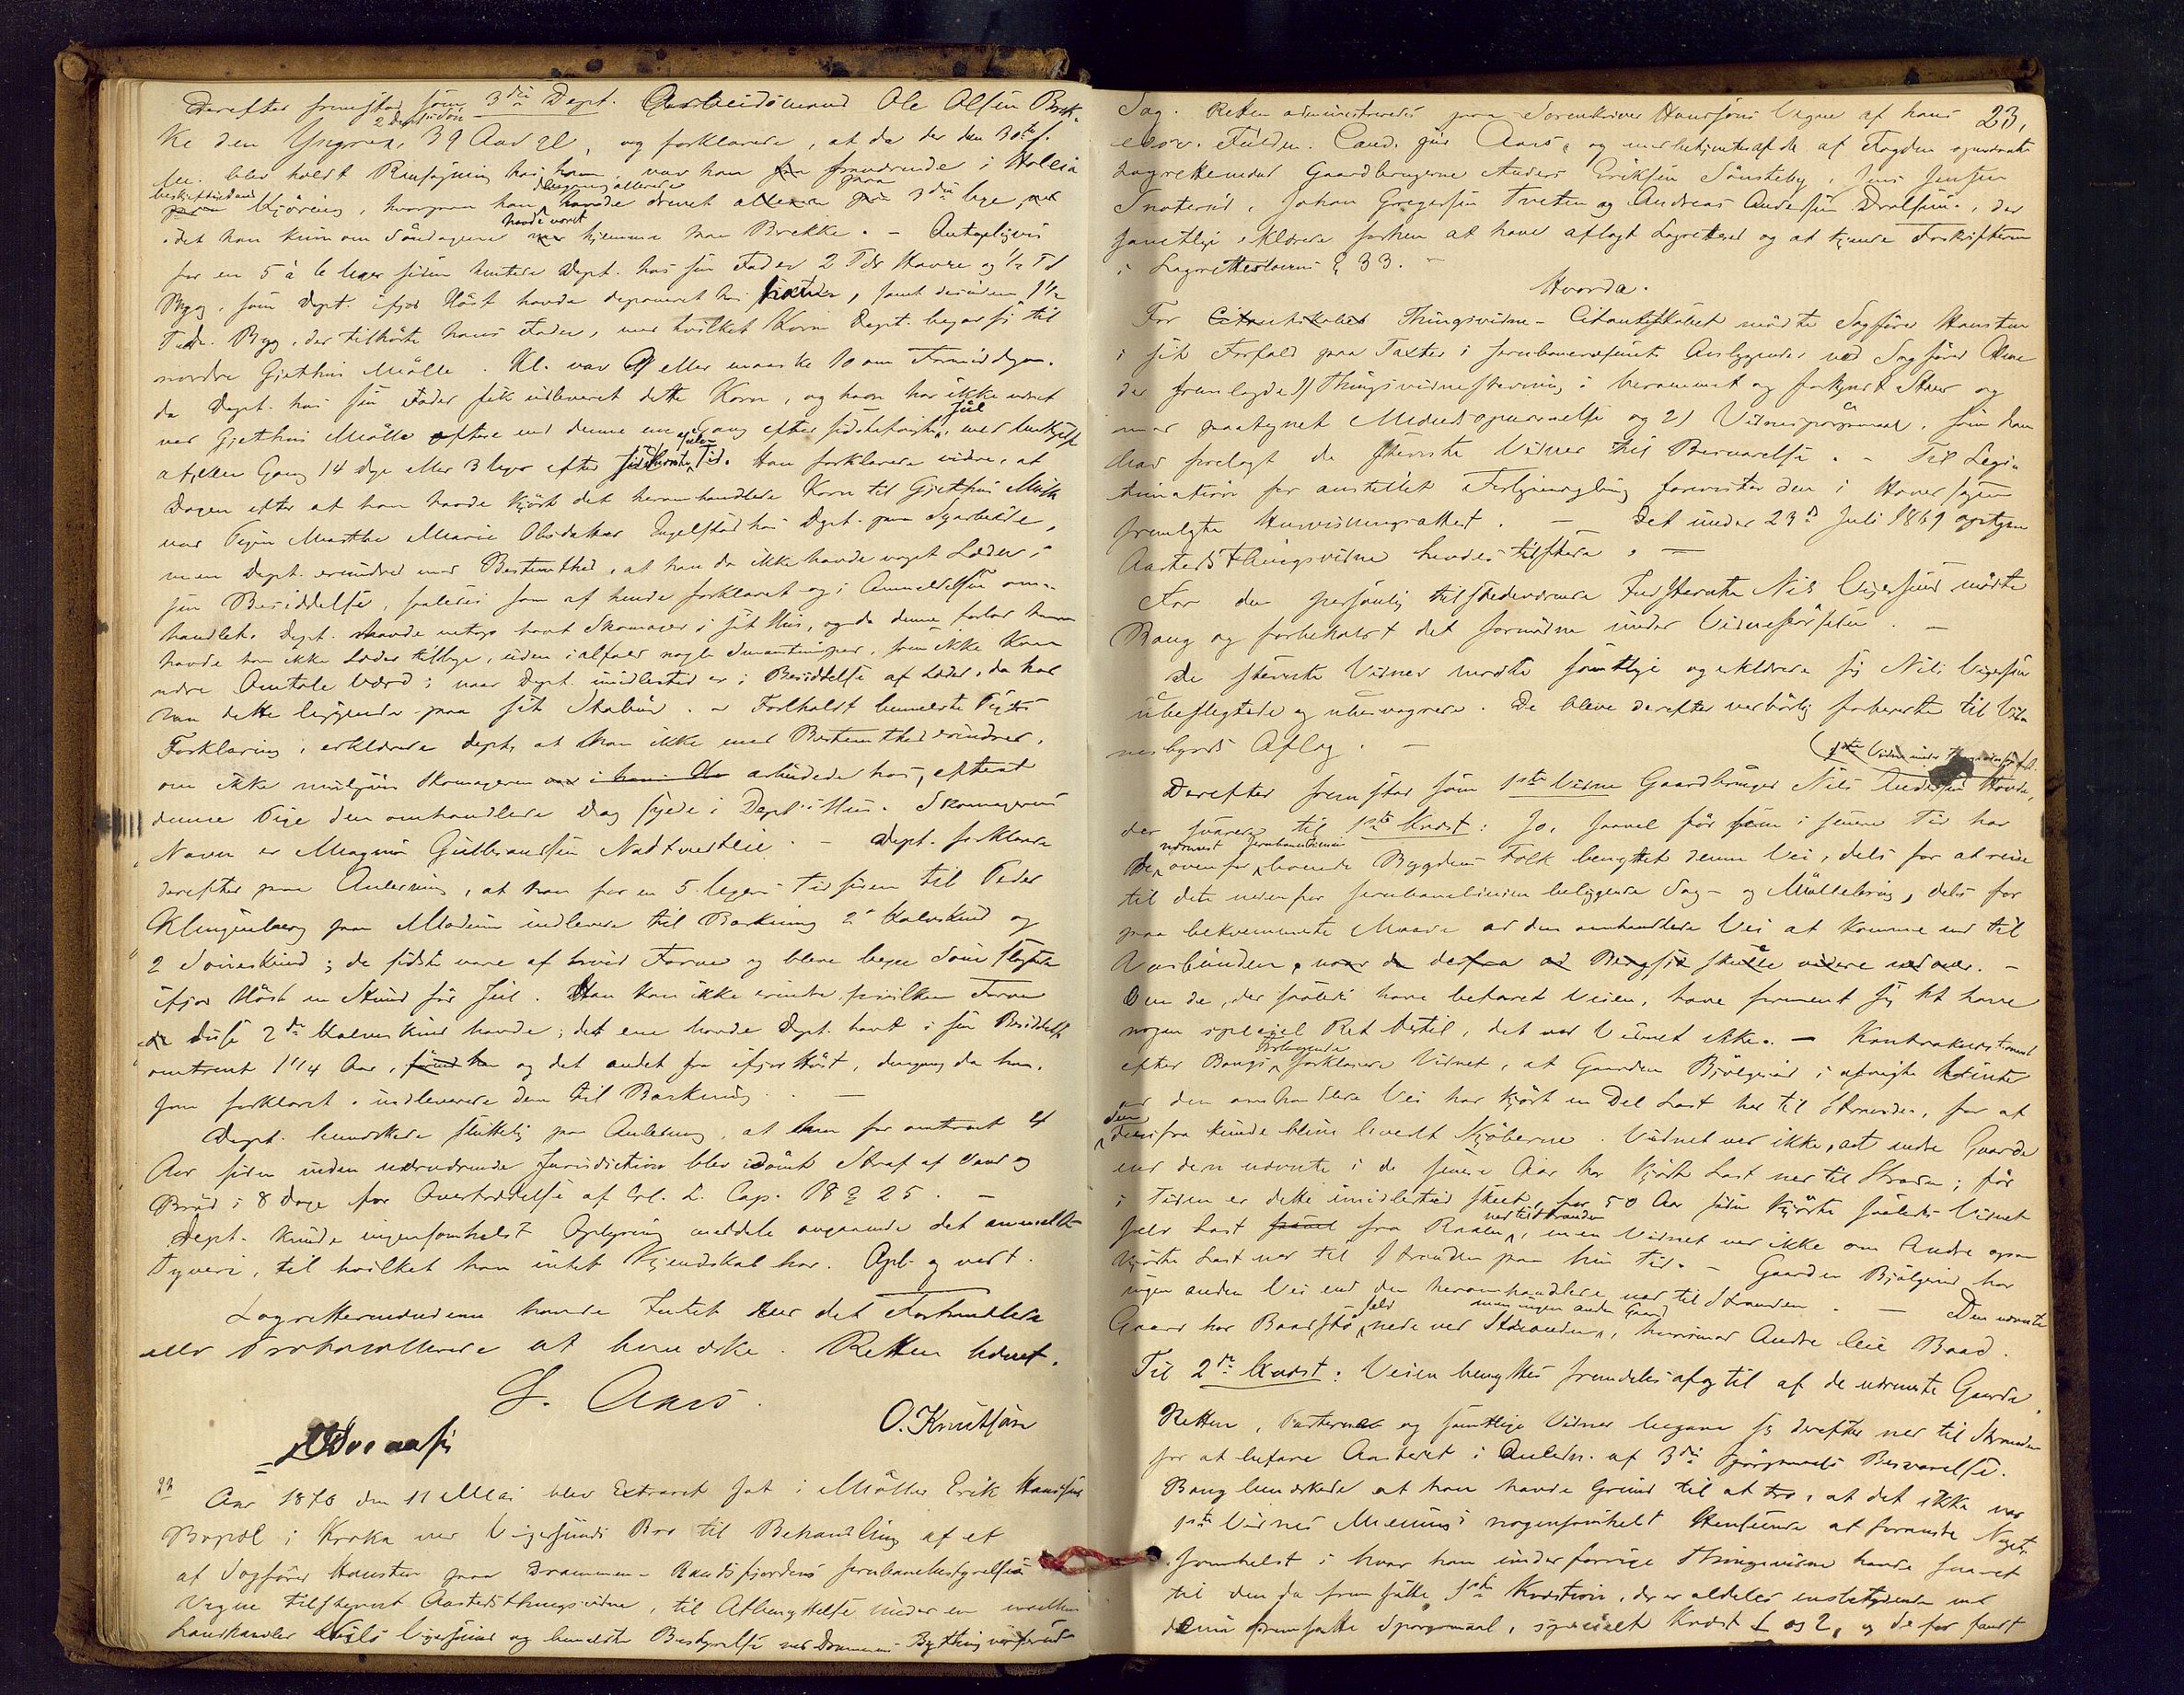 Derefter fremstod som 3die Dept. Arbeidsmand Ole Olsen Brek-
ke den Yngre, 39 Aar gl, og forklarede, at da der den 30te f.
M. blev holdt Ransagning hos ham, var han fraværende i
beskjæftiget med Kjøring, hvorpaa han dengang allerede havde drevet paa 3die Uge,
idet han kun om Søndagene havde været hjemme paa Brekke. - Antageligvis
for en 5 à 6 Uger siden hentede Dept. hos sin Fader 2 Tdr Havre og 1/2 Td
Byg, som Dept. ifjor Høst havde deponeret hos Faderen, samt desuden 1 1/2
Tdr. Byg, der tilhørte hans Fader, med hvilket Korn Dept. begav sig til
nordre Gjethus Mølle. Kl. var 9 eller maaske 10 om Formiddagen.
da Dept. hos sin Fader fik udleveret dette Korn, og han har ikke været
ved Gjethus Mølle oftere end denne ene Gang efter sidstafvigte Jul, med Undtagelse
af en Gang 14 Dage eller 3 Uger efter Juletid. Han forklarede videre, at
Dagen efter at han havde kjørt det heromhandlede Korn til Gjethus Mølle
var Pigen Marthe Marie Olsdatter Engelstad hos Dept. paa Syarbeide,
men Dept. erindrer med Bestemthed, at han da ikke havde noget Læder i
sin Besiddelse, saaledes som af hende forklaret og i Anmeldelsen om-
handlet. Dept. havde netop havt Skomager i sit Hus, og da denne forlod ham
havde han ikke Læder tilbage, uden ialfald nogle Smaastumper, som ikke kan
være Omtale værd; naar Dept. imidlertid er i Besiddelse af Læder, da har
han dette liggende paa sit Stabur. - Foreholdt bemeldte Piges
Forklaring, erklærede Dept. at han ikke med Bestemthed erindrer,
om ikke muligens Skomageren arbeidede hos, efterat
denne Pige den omhandlede Dag syede i Dept.s Hus. Skomagerens
Navn er Magnus Gulbrandsen Nattvedtlie. - Dept. forklarede
derefter paa Anledning, at han for en 5 Ugers Tid siden til Peder
Klingenberg paa Modum indleverede til Barkning 2 Kalveskind og
2 Soueskind; de sidste vare af hvid Farve og bleve begge Soue slagtede
ifjor Høst en Stund før Jul. Han kan ikke erindre, hvilken Farve
disse 2de Kalveskind havde; det ene havde Dept. havt i sin Besiddelse
omtrent 1 1/4 Aar, og det andet fra ifjor Høst, dengang da han,
som forklaret, indleverede dem til Barkning. -
Dept. bemærkede sluttelig paa Anledning, at han for omtrent 4
Aar siden inden nærværende Jurisdiction blev idømt Straf af Vand og
Brød i 8 Dage for Overtrædelse af Crl. L. Cap. 18 § 25. -
Dept. kunde ingensomhelst Oplysning meddele angaaende det anmeldte
Tyveri, til hvilket han intet Kjendskab har. Opl. og vedt.
Lagrettemændene havde Intet ved det Forhandlede
eller Protokollerede at bemærke. Retten hævet.
L. Aars.
O. Knutsen
22 Aar 1870 den 11 Mai blev Extraret sat i Møller Erik Hansens
Bopæl i Kroka ved Vigersunds Bro til Behandling af et
af Sagfører Hansteen paa Drammen-Randsfjordens Jernbanebestyrelses
Vegne tilstævnet Aastedsthingsvidne, til Afbenyttelse under en mellem
Landhandler Nils Vigersund og bemeldte Bestyrelse ved Drammens Bything verserende
23.
Sag. Retten administreredes paa Sorenskriver Hansens Vegne af hans
edsv. Fuldm. Cand. jur. Aars, og medbetjentes af de af Fogden opnævnte
Lagrettemænd Gaardbrugerne Anders Eriksen Sønsteby, Jens Jensen
Snatersd, Johan Gregersen Tveten og Andreas Andersen Drolsum, der
samtlige erklærede forhen at have aflagt Lagretteed og at kjende Forskrifterne
i Lagrettelovens § 33. -
Hvorda.
For Thingsvidne-Citantskabet mødte Sagfører Hansteen
i hvis Forfald paa Taxter i Jernbanevæsenets Anliggender ved Sagfører
der fremlagde 1) Thingsvidnestævning i berammet og forkyndt Stand og
med paategnet Mændsopnævnelse og 2) Vidnespørgsmaal, som han
bad forelagt de stævnte Vidner til Besvarelse. - Til Legi-
timation for anstillet Forligsmægling foreviste den i Hovedsagen
fremlagte Henvisningsattest. - Det under 23de Juli 1869 optagne
Aastedsthingsvidne havdes tilstede. -
For den personlig tilstedeværende Indstævnte Nils Vigersund mødte
Bang og forbeholdt det fornødne under Vidneførselen. -
De stævnte Vidner mødte samtlige og erklærede sig Nils Vigersund
ubeslegtede og ubesvogrede. De bleve derefter verbørlig foreberedte til Vid-
nesbyrds Aflæg. -
Derefter fremstod som 1ste Vidne Gaardbruger Nils Andersen Hovde,
der svarede til 1ste Kvæst: Jo, saavel før som i senere Tid har
de nærmest ovenfor Jernbanelinien boende Bygdens Folk benyttet denne Vei, dels for at reise
til dete nedenfor Jernbanelinien beliggende Sag- og Møllebrug, dels for
paa bekvemmeste Maade ad den omhandlede Vei at komme ned til
Vasbunden, naar de derfra ad Bergsjø skulde videre nedover. -
Om de, der saaledes have befaret Veien, have forment sig at have
nogen speciel Ret dertil, det ved Vidnet ikke. - Kontrakvæstioneret
efter Bangs Forlangende forklarede Vidnet, at Gaarden Bjølgerud i afvigte Vinter
ad den omhandlede Vei har kjørt en Del Last her til Stranden, for at
den derfra kunde blive leveret Kjøberne. Vidnet ved ikke, at andre Gaarde
end den nævnte i de senere Aar har kjørt Last ned til Stranden; før
i Tiden er dette imidlertid skeet, for 50 Aar siden kjørte saaledes Vidnet
selv Last fra Raaen ned til Stranden, men Vidnet ved ikke om Andre ogsaa
kjørte Last ned til Stranden paa hin Tid. - Gaarden Bjølgerud har
ingen anden Vei end den heromhandlede ned til Stranden. - Den nævnte
Gaard har Baadstø selv nede ved Stranden, men ingen anden Gaard, hvorimod Andre leie Baad.
Til 2det Kvæst: Veien benyttes fremdeles af og til af de nærmeste Gaarde.
Retten, Parterne og samtlige Vidner begave sig derefter ned til Stranden
for at befare Aastedet i Anledn. af 3die Spørgsmaals Besvarelse.
Bang bemærkede at han havde Grund til at tro, at det ikke var
1ste Vidnes Mening i nogensomhelst Henseende at forandre Noget-
somhelst i hvad han under forrige Thingsvidne havde svaret
til den da fremsatte 1ste Kvæstion, der er aldeles enstydende med
de nu fremsatte Spørgsmaal, specielt Kvæst 1 og 2, og de før fandt